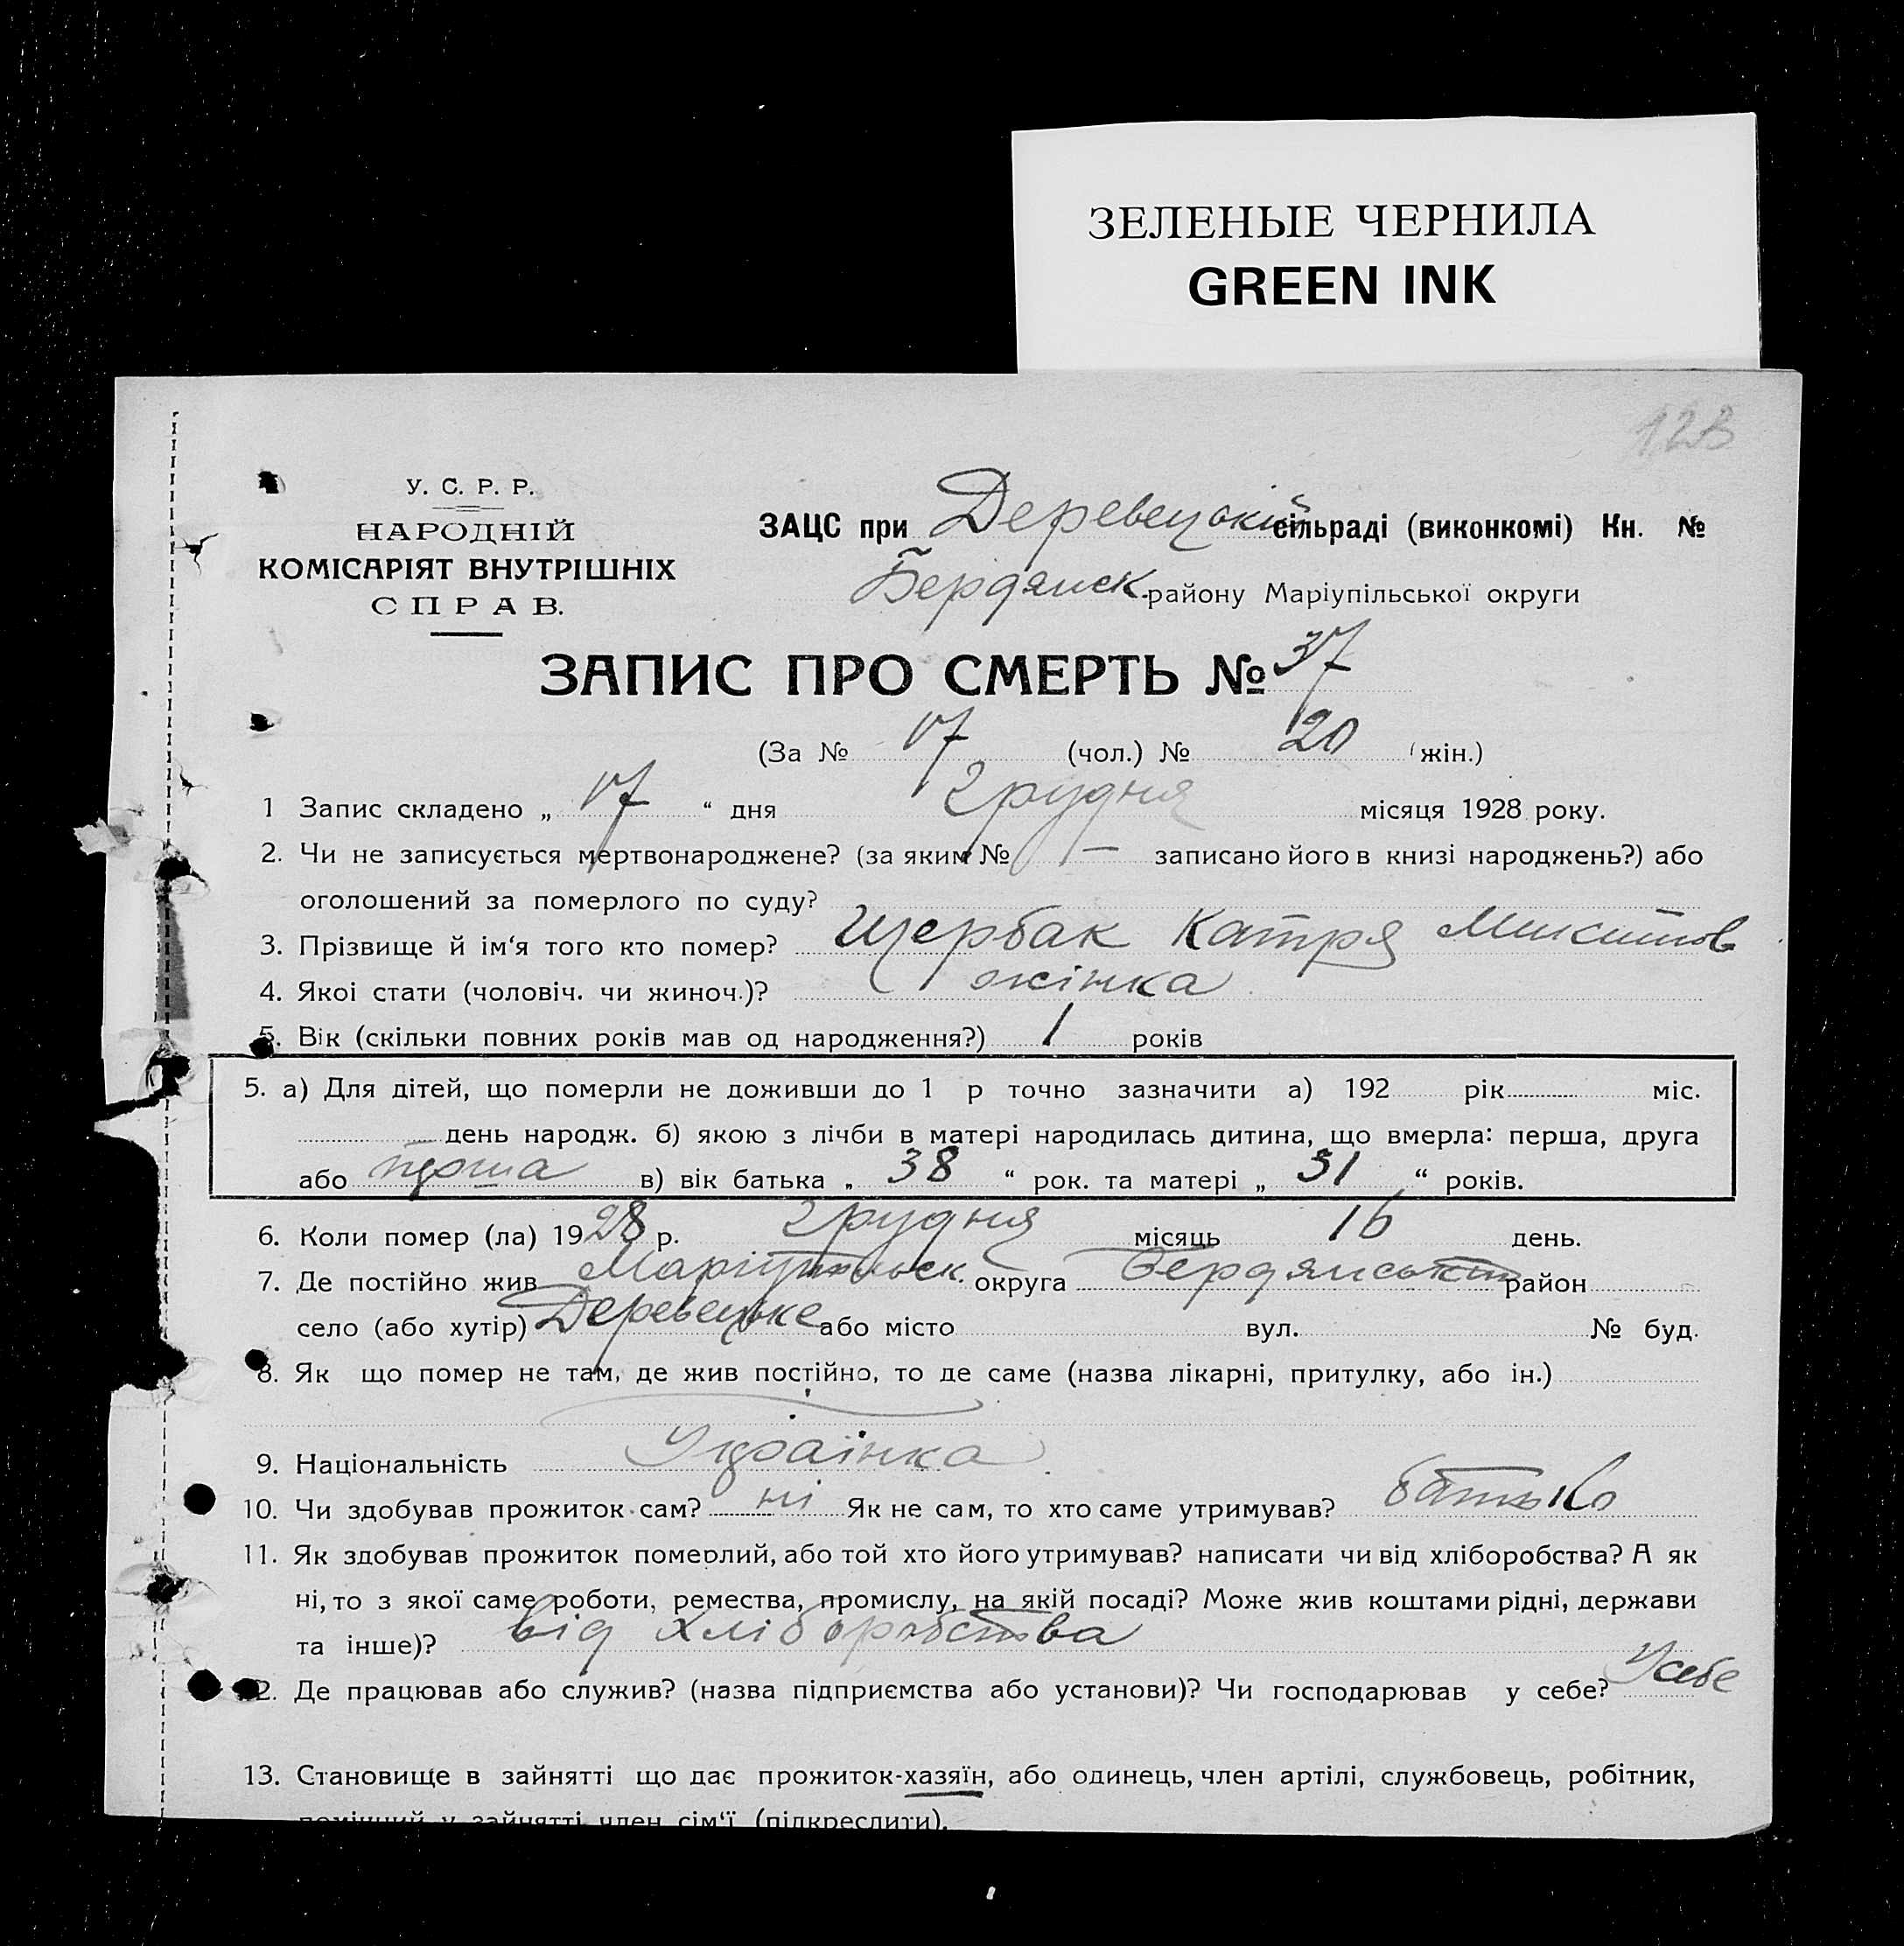 ЗЕЛЕНЫЕ ЧЕРНИЛА
GREEN INK
123
У. С. Р. Р.
НАРОДНІЙ
КОМІСАРІЯТ ВНУТРІШНІХ
СПРАВ.
ЗАЦС при Деревецькій сільраді (виконкомі) Кн. №
Бердянск. району Маріупільської округи
ЗАПИС ПРО СМЕРТЬ № 37
(За № 17 (чол.) № 20 (жін.)
1 Запис складено „ 17 “ дня Грудня місяця 1928 року.
2. Чи не записується мертвонароджене? (за яким № — записано його в книзі народжень?) або
оголошений за померлого по суду?
3. Прізвище й ім‘я того хто помер? Щербак Катря Микитов
4. Якоі стати (чоловіч. чи жиноч.)? жінка
5. Вік (скільки повних років мав од народження?) 1 років
5. а) Для дітей, що померли не доживши до 1 р точно зазначити а) 192 рік міс.
день народж. б) якою з лічби в матері народилась дитина, що вмерла: перша, друга
або в) вік батька „ 38 “ рок. та матері „ 31 “ років.
6. Коли помер (ла) 1928 р. Грудня місяць 16 день.
7. Де постійно жив Маріупільск. округа Бердянський район
село (або хутір) Деревецьке або місто вул. № буд.
8. Як що помер не там, де жив постійно, то де саме (назва лікарні, притулку, або ін.)
9. Національність Українка
10. Чи здобував прожиток сам? ні Як не сам, то хто саме утримував? батько
11. Як здобував прожиток померлий, або той хто його утримував? написати чи від хліборобства? А як
ні, то з якої саме роботи, ремества, промислу, на якій посаді? Може жив коштами рідні, держави
та інше)? від хліборобства
12. Де працював або служив? (назва підприємства або установи)? Чи господарював у себе? У себе
13. Становище в зайнятті що дає прожиток-хазяїн, або одинець, член артілі, службовець, робітник,
помічний у зайнятті член сім‘ї (підкреслити).